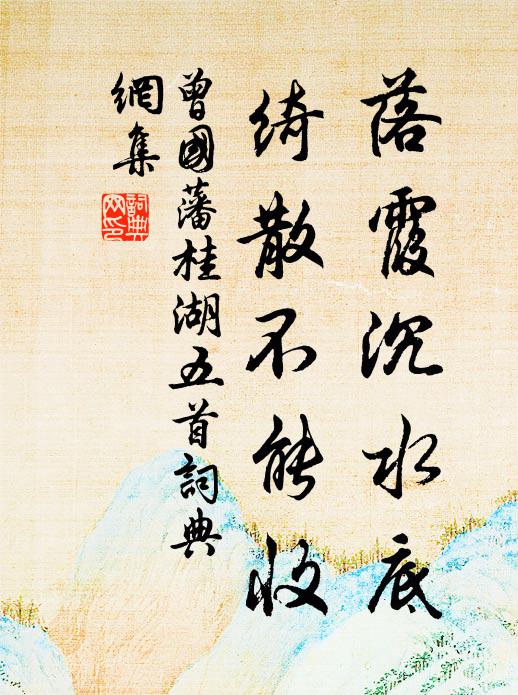 落霞沉水底
綺散不能收
曾國藩桂湖五首詞典
網集
詞典
网印